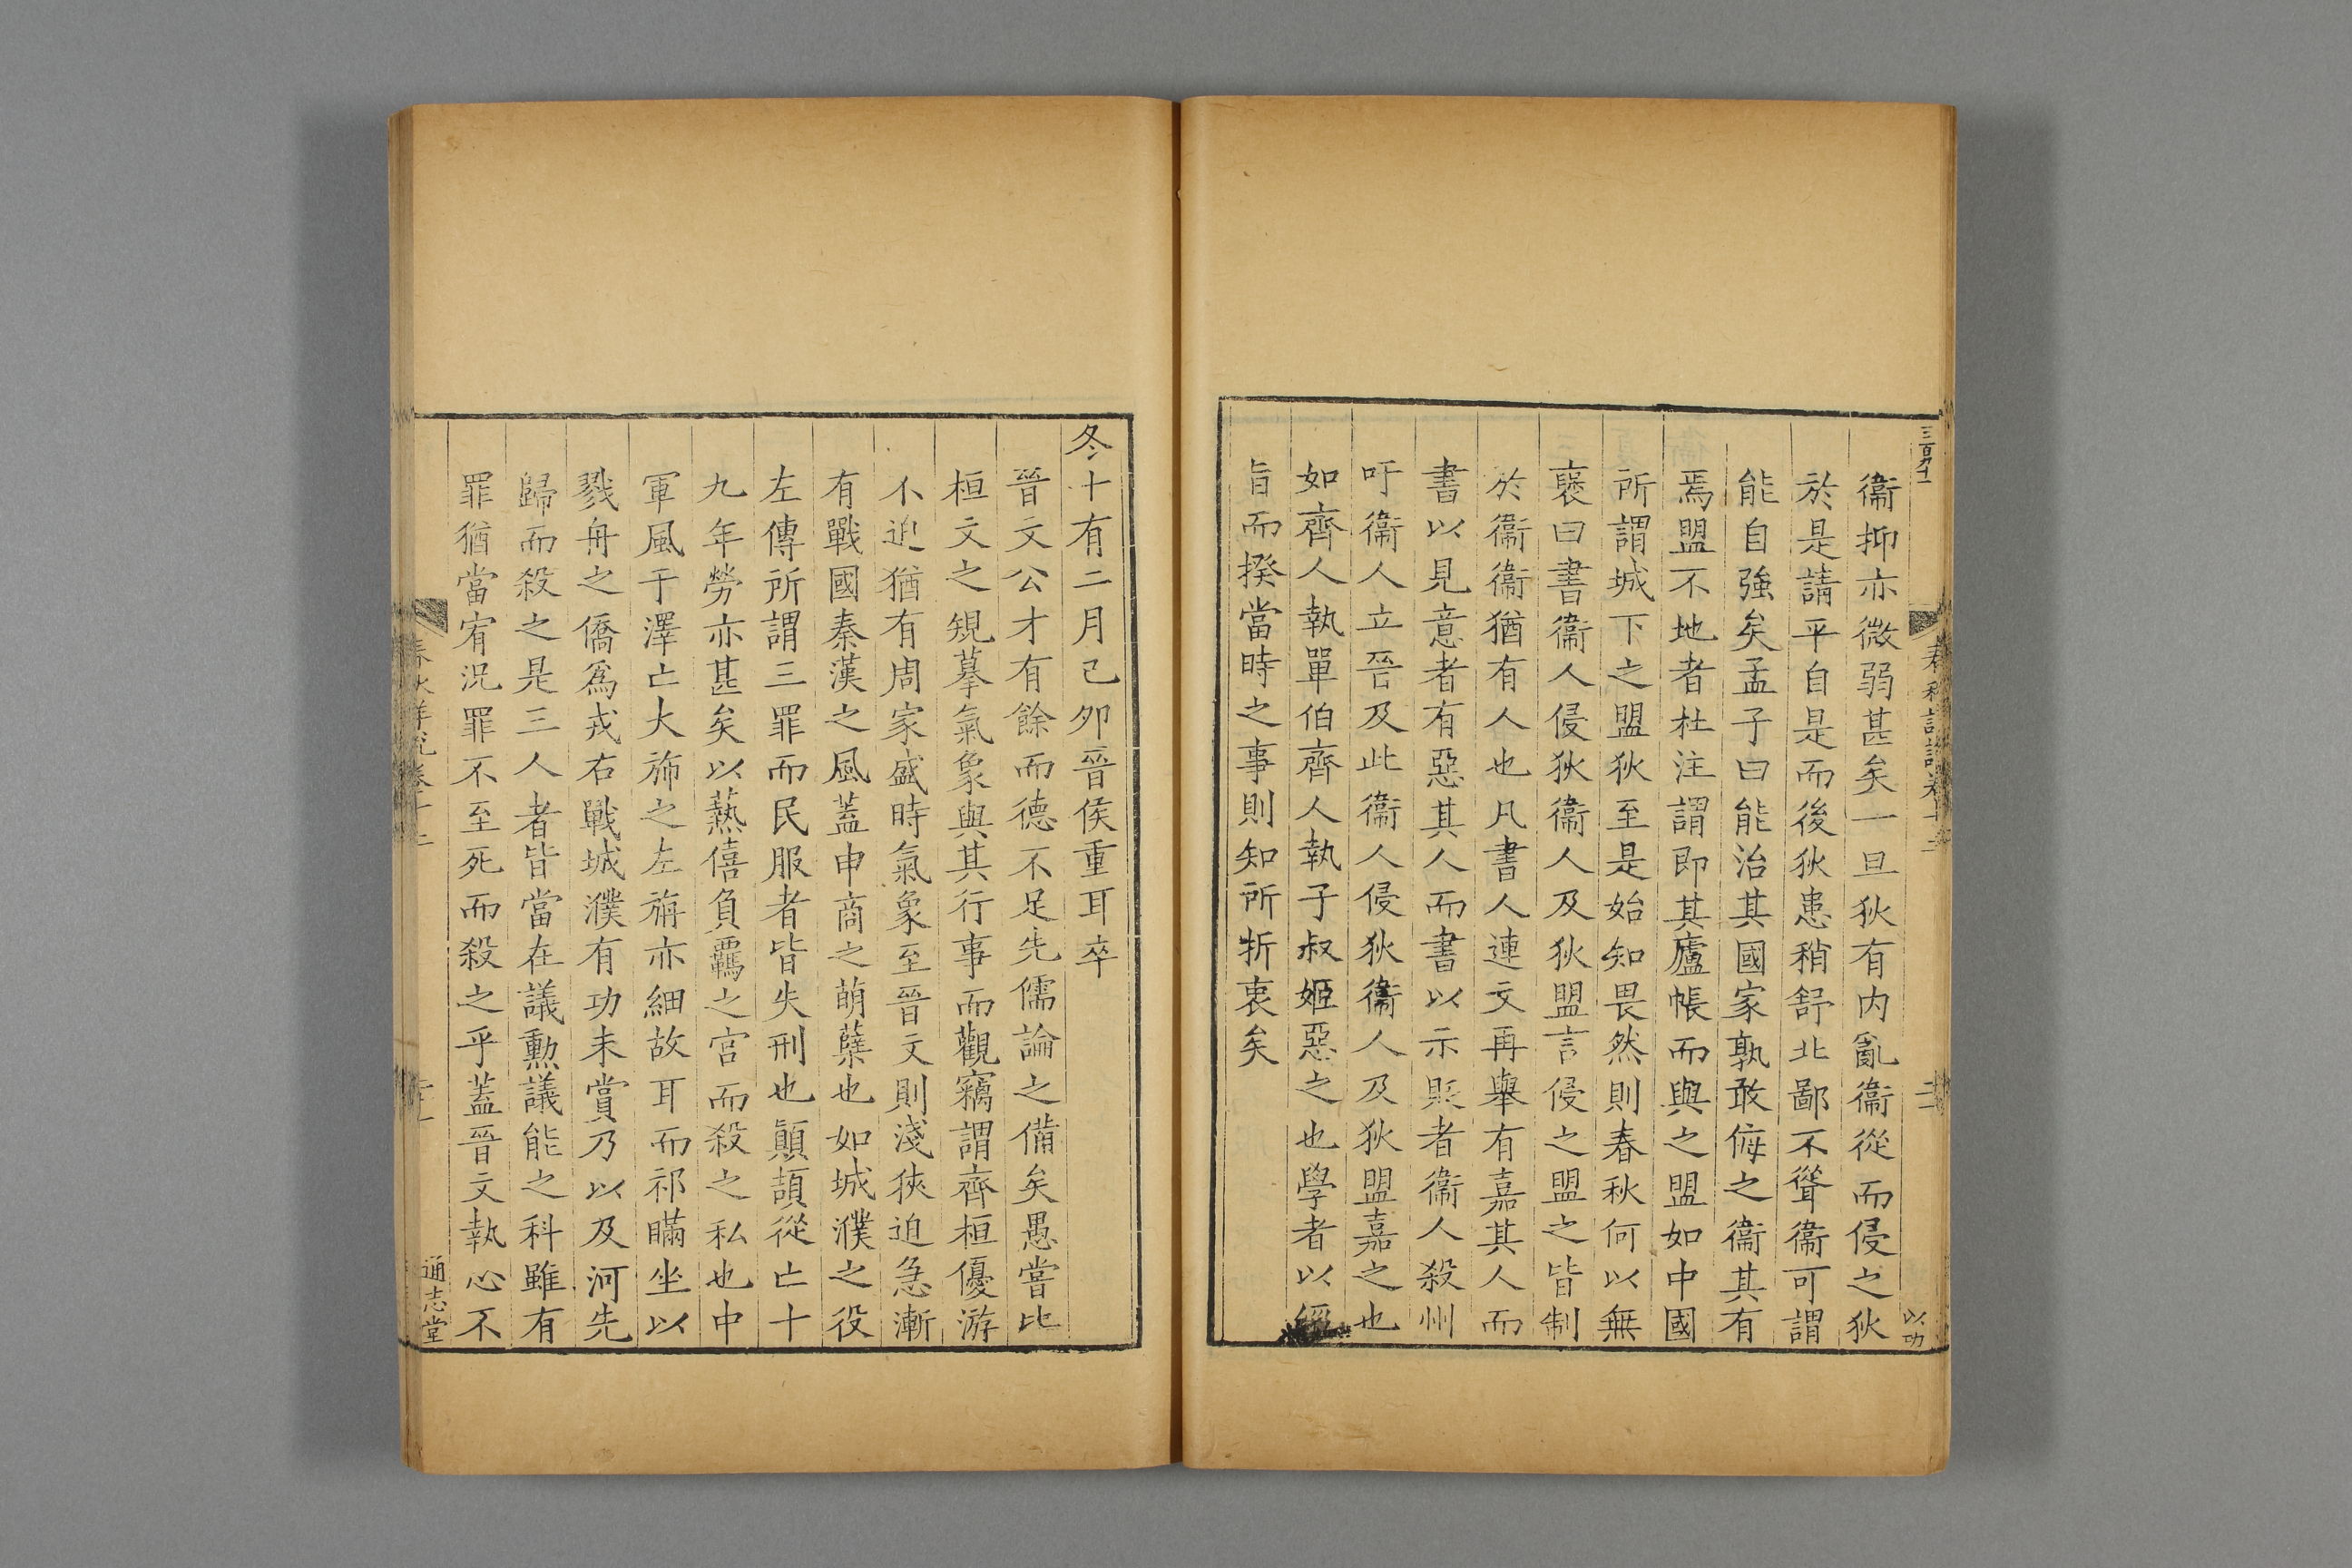 衞抑亦微弱甚矣一旦狄有内亂衞從而侵之狄
於是請平自是而後狄患稍舒北鄙不聳衞可謂
能自強矣孟子曰能治其國家孰敢侮之衞其有
焉盟不地者杜注謂即其廬帳而與之盟如中國
所謂城下之盟狄至是始知畏然則春秋何以無
襃曰書衞人侵狄衞人及狄盟言侵之盟之皆制
於衞衞猶有人也凡書人連文再舉有嘉其人而
書以見意者有惡其人而書以示貶者衞人殺州
吁衞人立晉及此衞人侵狄衞人及狄盟嘉之也
如齊人執單伯齊人執子叔姬惡之也學者以經
旨而揆當時之事則知所折衷矣
以功
冬十有二月己夘晉侯重耳卒
晉文公才有餘而德不足先儒論之備矣愚嘗比
桓文之規摹氣象與其行事而觀竊謂齊桓優游
不迫猶有周家盛時氣象至晉文則淺狹迫急漸
有戰國秦漢之風蓋申商之萌蘖也如城濮之役
左傳所謂三罪而民服者皆失刑也顛頡從亡十
九年勞亦甚矣以爇僖負羈之宮而殺之私也中
軍風于澤亡大斾之左旃亦細故耳而祁瞞坐以
戮舟之僑爲戎右戰城濮有功未賞乃以及河先
歸而殺之是三人者皆當在議勲議能之科雖有
罪猶當宥況罪不至死而殺之乎蓋晉文執心不
春秋詳說卷十二
通志堂